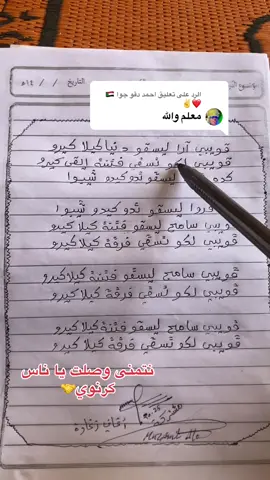 الموضوع
التاريخ / / ١٤هـ
الرد على تعليق احمد دفو جوا 🇸🇩
❤️✌️
معلم والله
قويبي آرا ليسڤو دنيا كيلا كيرو
قويبي لكو تسڤي فتنة
كدە ليسڤو تدو كيدو شيوا
فردا ليسڤو تدو كيدو شيوا
قويبي سامح ليسڤو فتنة كيلا كيرو
قويبي لكو تسڤي فرقة كيلا كيرو
قويبي سامح ليسڤو فتنة كيلا كيرو
قويبي لكو تسڤي فرقة كيلا كيرو
قويبي سامح ليسڤو فتنة كيلا كيرو
قويبي لكو تسڤي فرقة كيلا كيرو
نتمنى وصلت يا ناس
كرنوي🤝